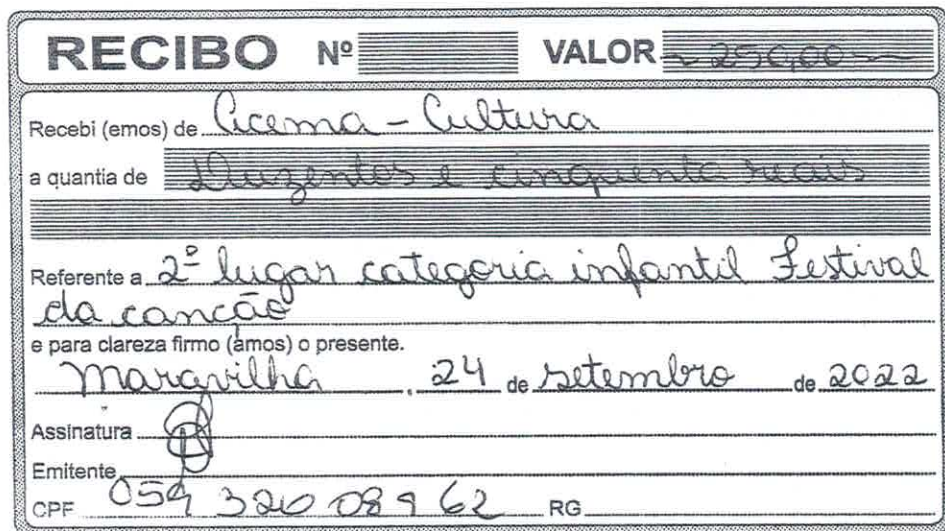 RECIBO Nº VALOR 250,00
Recebi (emos) de Acema - Cultura
a quantia de Duzentos e cinquenta reais
Referente a 2º lugar categoria infantil Festival
da canção
e para clareza firmo (amos) o presente.
Maravilha, 24 de setembro de 2022
Assinatura
Emitente
CPF 059 320 089 62 RG